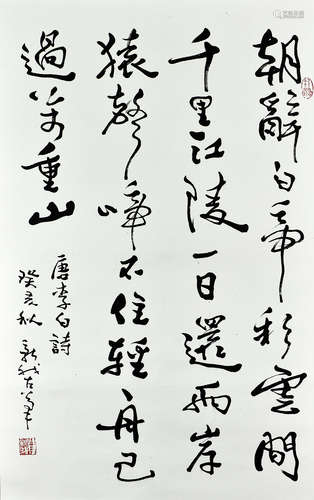 朝辭白帝彩雲間
千里江陵一日還兩岸
猿聲啼不住輕舟已
過萬重山
唐李白詩
癸亥秋新我左筆